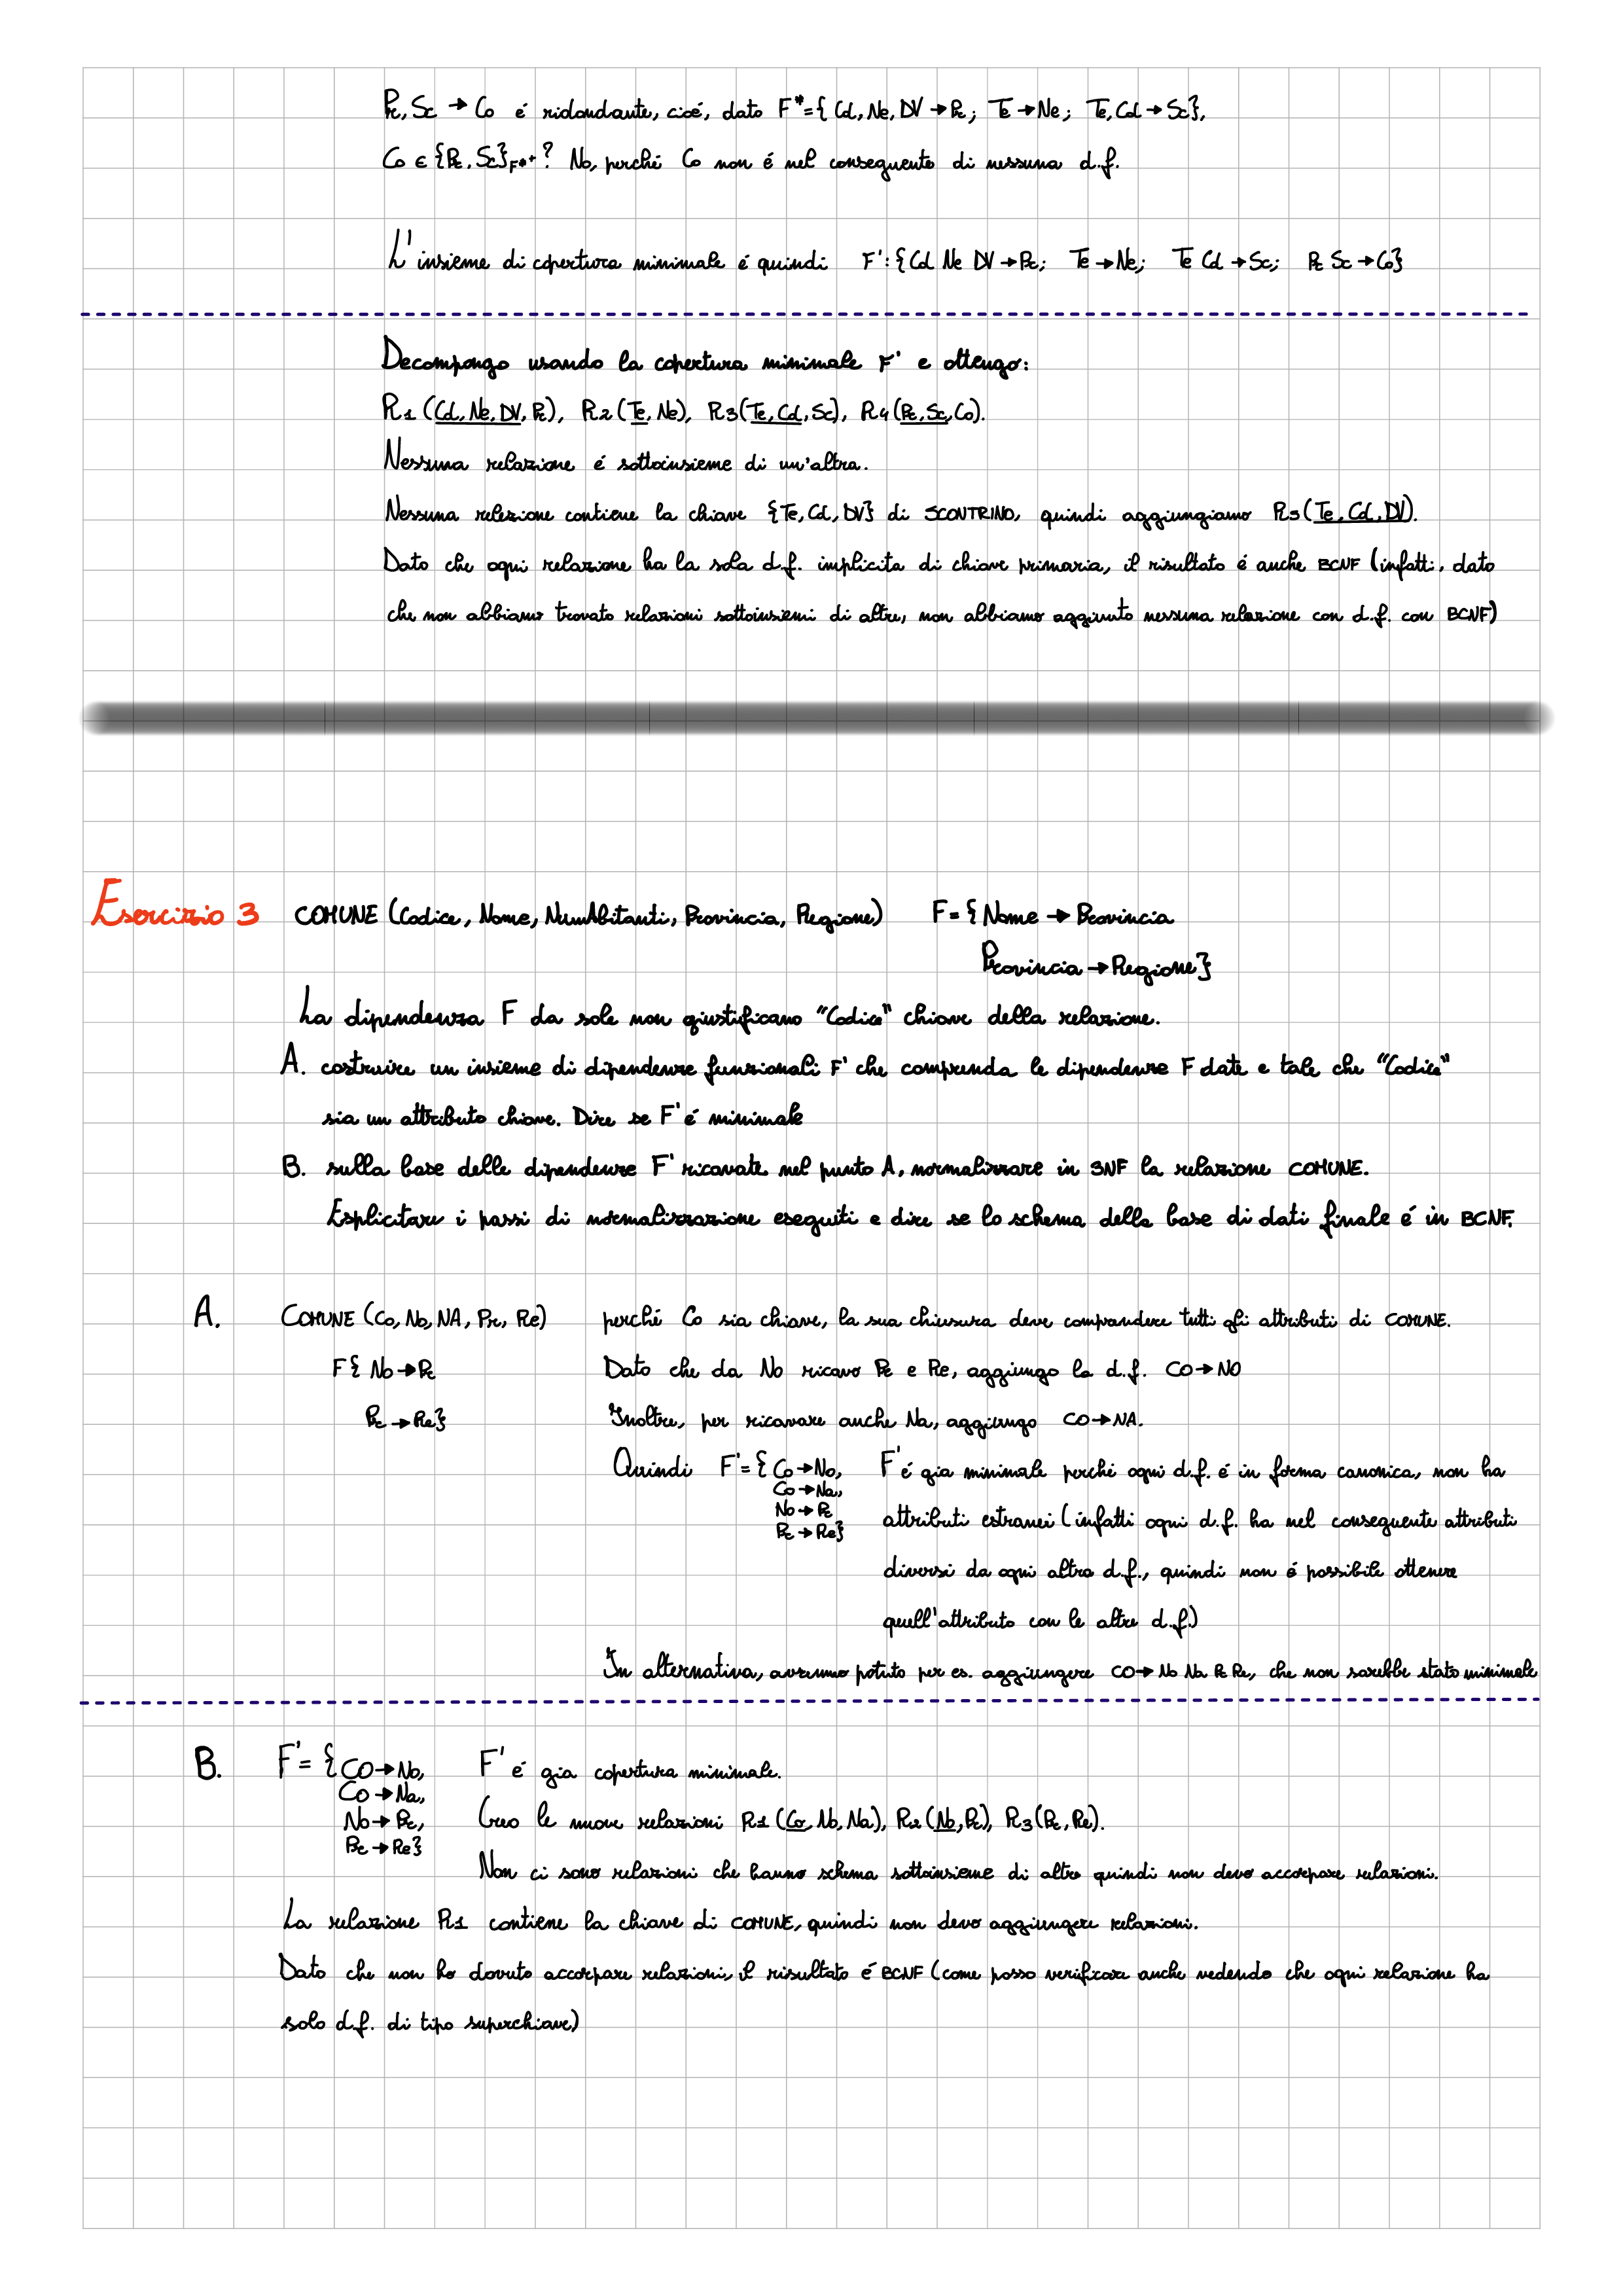 Pr, Sc → Co é ridondante, cioé, dato F*={ Cd, Ne, DV → Pr; Te → Ne; Te, Cd → Sc},
Co ∈ {Pr, Sc}F*+ ? No, perché Co non é nel conseguente di nessuna d.f.
L'insieme di copertura minimale é quindi F': {Cd Ne DV → Pr; Te → Ne; Te Cd → Sc; Pr Sc → Co}
Decompongo usando la copertura minimale F' e ottengo:
R1 (Cd, Ne, DV, Pr), R2 (Te, Ne), R3 (Te, Cd, Sc), R4 (Pr, Sc, Co).
Nessuna relazione é sottoinsieme di un'altra.
Nessuna relazione contiene la chiave {Te, Cd, DV} di SCONTRINO, quindi aggiungiamo R5 (Te, Cd, DV).
Dato che ogni relazione ha la sola d.f. implicita di chiave primaria, il risultato é anche BCNF (infatti, dato
che non abbiamo trovato relazioni sottoinsiemi di altre, non abbiamo aggiunto nessuna relazione con d.f. con BCNF)
Esercizio 3 COMUNE (Codice, Nome, NumAbitanti, Provincia, Regione) F = { Nome → Provincia
Provincia → Regione}
La dipendenza F da sole non giustificano "Codice" chiave della relazione.
A. costruire un insieme di dipendenze funzionali F' che comprenda le dipendenze F date e tale che "Codice"
sia un attributo chiave. Dire se F' é minimale
B. sulla base delle dipendenze F' ricavate nel punto A, normalizzare in 3NF la relazione COMUNE.
Esplicitare i passi di normalizzazione eseguiti e dire se lo schema della base di dati finale é in BCNF.
A. COMUNE (Co, No, NA, Pr, Re) perché Co sia chiave, la sua chiusura deve comprendere tutti gli attributi di COMUNE.
F{ No → Pr Dato che da No ricavo Pr e Re, aggiungo la d.f. CO → NO
Pr → Re} Inoltre, per ricavare anche Na, aggiungo CO → NA.
Quindi F' = { Co → No, F' é gia minimale perché ogni d.f. é in forma canonica, non ha
Co → Na,
No → Pr attributi estranei (infatti ogni d.f. ha nel conseguente attributi
Pr → Re}
diversi da ogni altra d.f., quindi non é possibile ottenere
quell'attributo con le altre d.f.)
In alternativa, avremmo potuto per es. aggiungere CO → No Na Pr Re, che non sarebbe stato minimale
B. F' = { CO → No, F' é gia copertura minimale.
Co → Na,
No → Pr, Creo le nuove relazioni R1 (Co, No, Na), R2 (No, Pr), R3 (Pr, Re).
Pr → Re}
Non ci sono relazioni che hanno schema sottoinsieme di altre quindi non devo accorpare relazioni.
La relazione R1 contiene la chiave di COMUNE, quindi non devo aggiungere relazioni.
Dato che non ho dovuto accorpare relazioni, il risultato é BCNF (come posso verificare anche vedendo che ogni relazione ha
solo d.f. di tipo superchiave)